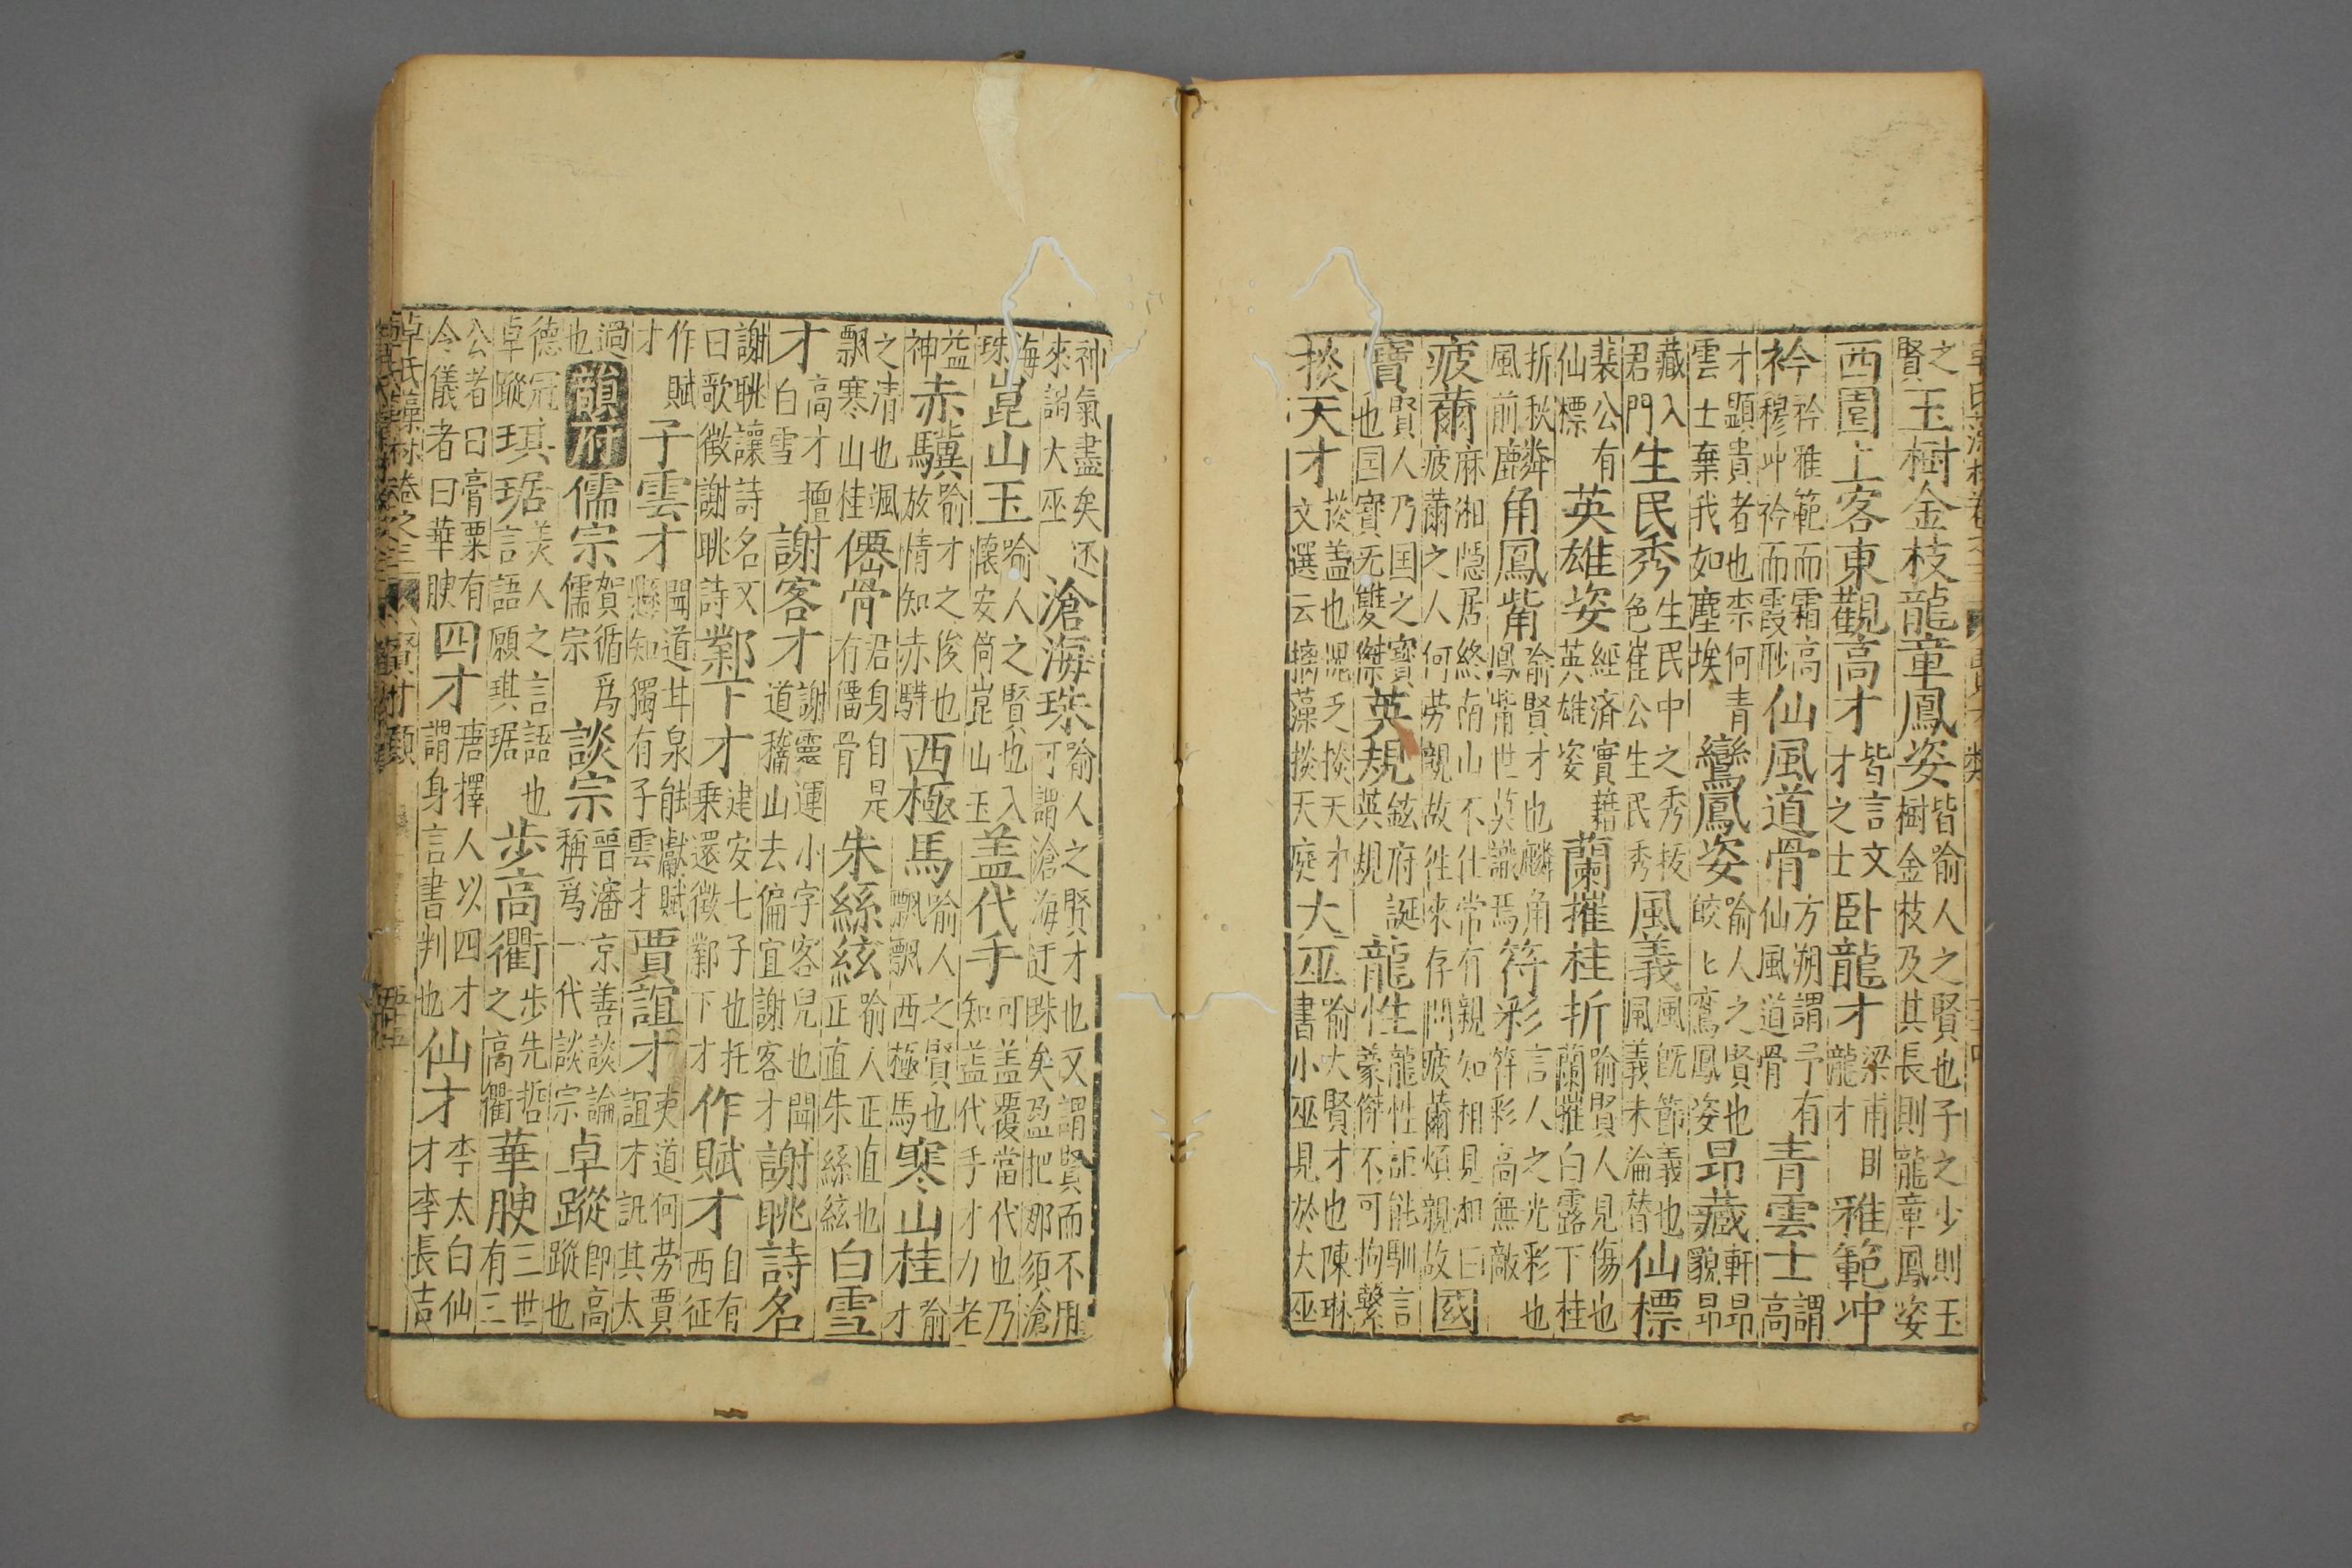 之賢玉樹金枝龍章鳳姿皆喻人之賢也子之少則玉樹金枝及其長則龍章鳳姿
西園上客東觀高才皆言文才之士臥龍才梁甫卧龍才雅範冲
衿衿雅範而霜高穆冲衿而霞耐仙風道骨方朔謂予有仙風道骨青雲士謂高
才顯貴者也柰何青雲士棄我如塵埃鸞鳳姿喻人之賢也皎匕鸞鳳姿昂藏軒昂貌昂
藏入君門生民秀生民中之秀拔色崔公生民秀風義風既節義也風義未淪替仙標
裴公有仙標英雄姿經濟實藉英雄姿蘭摧桂折喻賢人見傷也蘭摧白露下桂
折秋風前麟角鳳觜喻賢才也麟角鳳觜世莫識焉符彩言人之光彩也符彩高無敵
疲薾麻湘隱居終南山不仕常有親知相見相曰疲薾之人何勞親故徃來存問疲薾煩親故國
寶賢人乃国之寶也国寳无雙傑英規鉉府誕英規龍性龍性詎能馴言蒙傑不可拘繫
掞天才掞盖也混乏掞天才文選云摛藻掞天庭大巫喻大賢才也陳琳書小巫見於大巫
神氣盡矣还來謁大巫滄海珠喻人之賢才也又謂賢而不用可謂滄海迂珠矣盈把那須滄
海珠崑山玉喻人之賢也入懷安筒崑山玉盖代手可盖覆當代也乃知盖代手才力老
益神赤驥喻才之俊也放情知赤驊西極馬喻人之賢也飄飄西極馬寒山桂喻才
之清也颯飄寒山桂僊骨君身自是有僊骨朱絲絃喻人正直也正直朱絲絃白雪
才高才擅白雪謝客才謝靈運小字客兒也聞道稱山去偏宜謝客才謝眺詩名
謝眺讓詩名又曰歌徵謝眺詩鄴下才建安七子也托乗還徵鄴下才作賦才自有西征
作賦才子雲才聞道甘泉能獻賦懸知獨有子雲才賈誼才夷道何劳賈誼才訊其太
過也韻府儒宗賀循爲儒宗談宗晉瀋京善談論稱爲一代談宗卓蹤卽高蹤也
德冠卓蹤琪琚美人之言語也言語願琪琚步高衢步先哲之高衢華腴三世有三
公者曰膏粟有令儀者曰華腴四才唐擇人以四才謂身言書判也仙才李太白仙才李長吉
卓氏藻林卷之三